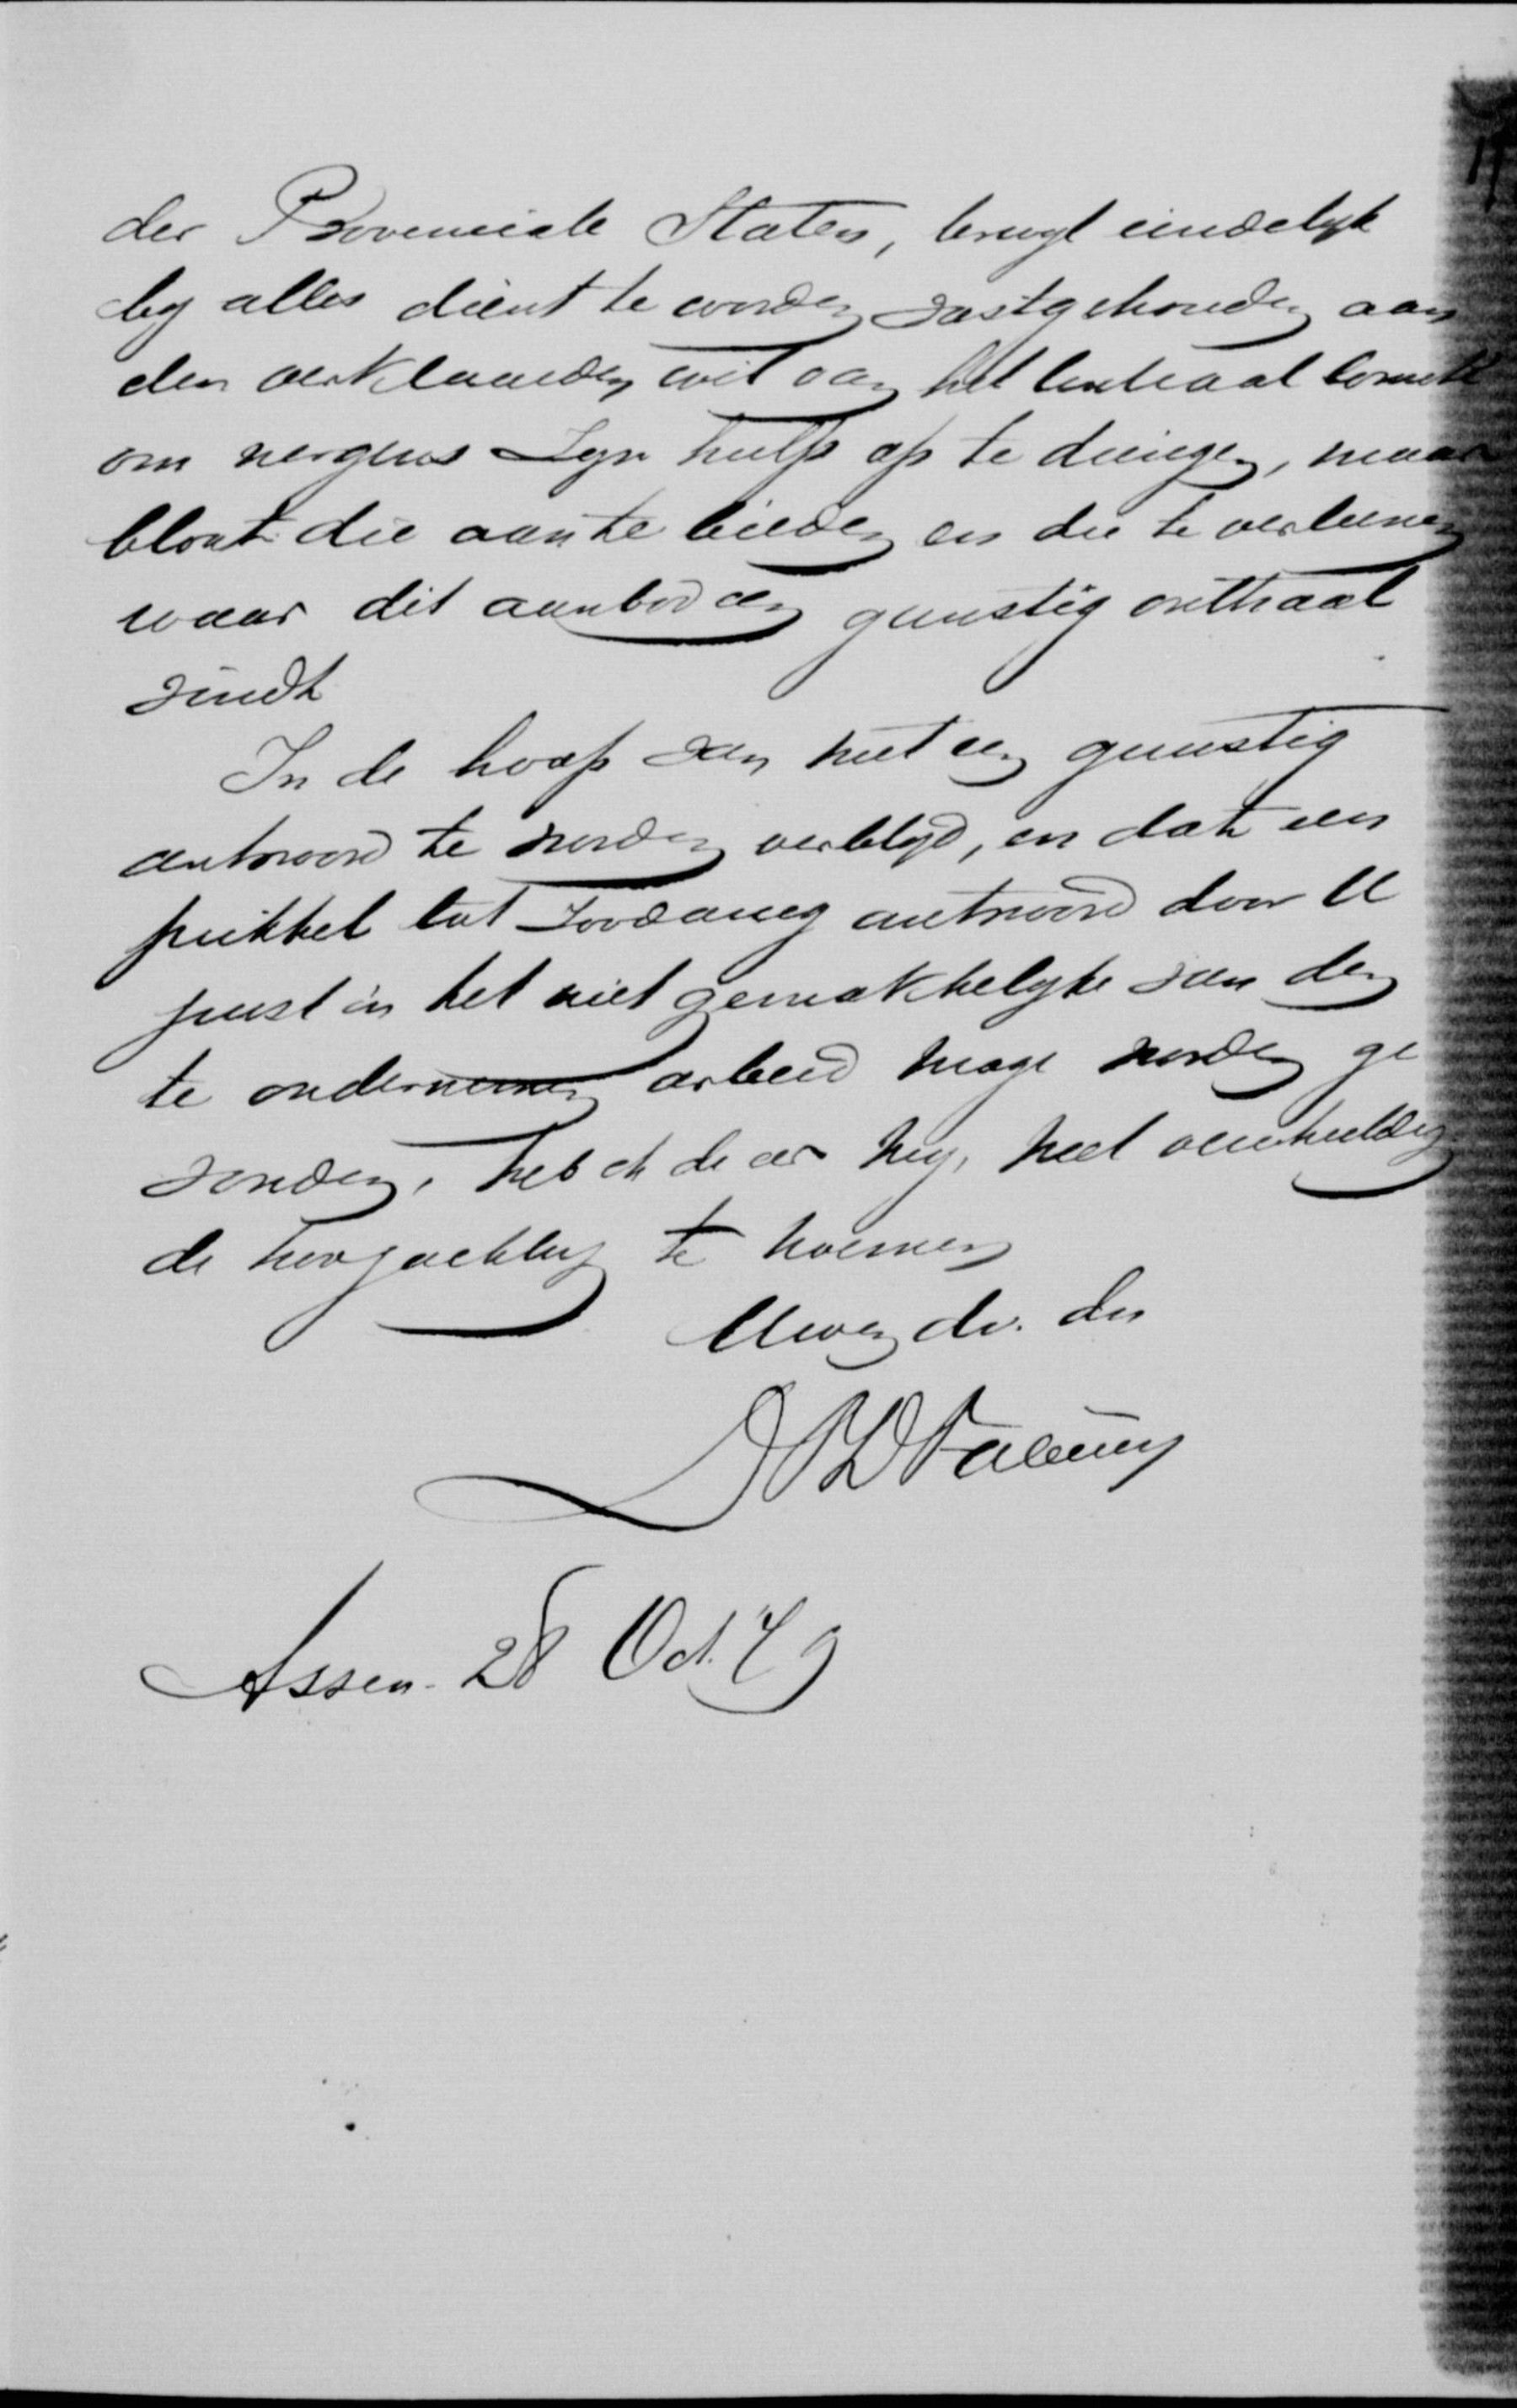 der Provinciale Staten, terwyl eindelyk
by alles dient te worden vastgehouden aan
den verklaarden wil van het Centraal Comité
om nergens zyn hulp op te dringen, maar
bloot die aan te bieden en die te verleenen
waar dit aanbod een gunstig onthaal
vindt
In de hoop van met een gunstig
antwoord te worden verblyd, en dat een
prikkel tot zoodanig antwoord door U
juist in het niet gemakkelyke van den
te ondernemen arbeid moge worden ge
vonden, heb ik de eer my, met
de hoogachting te noemen
Uwen dv. dr
Assen 28 Oct. 79